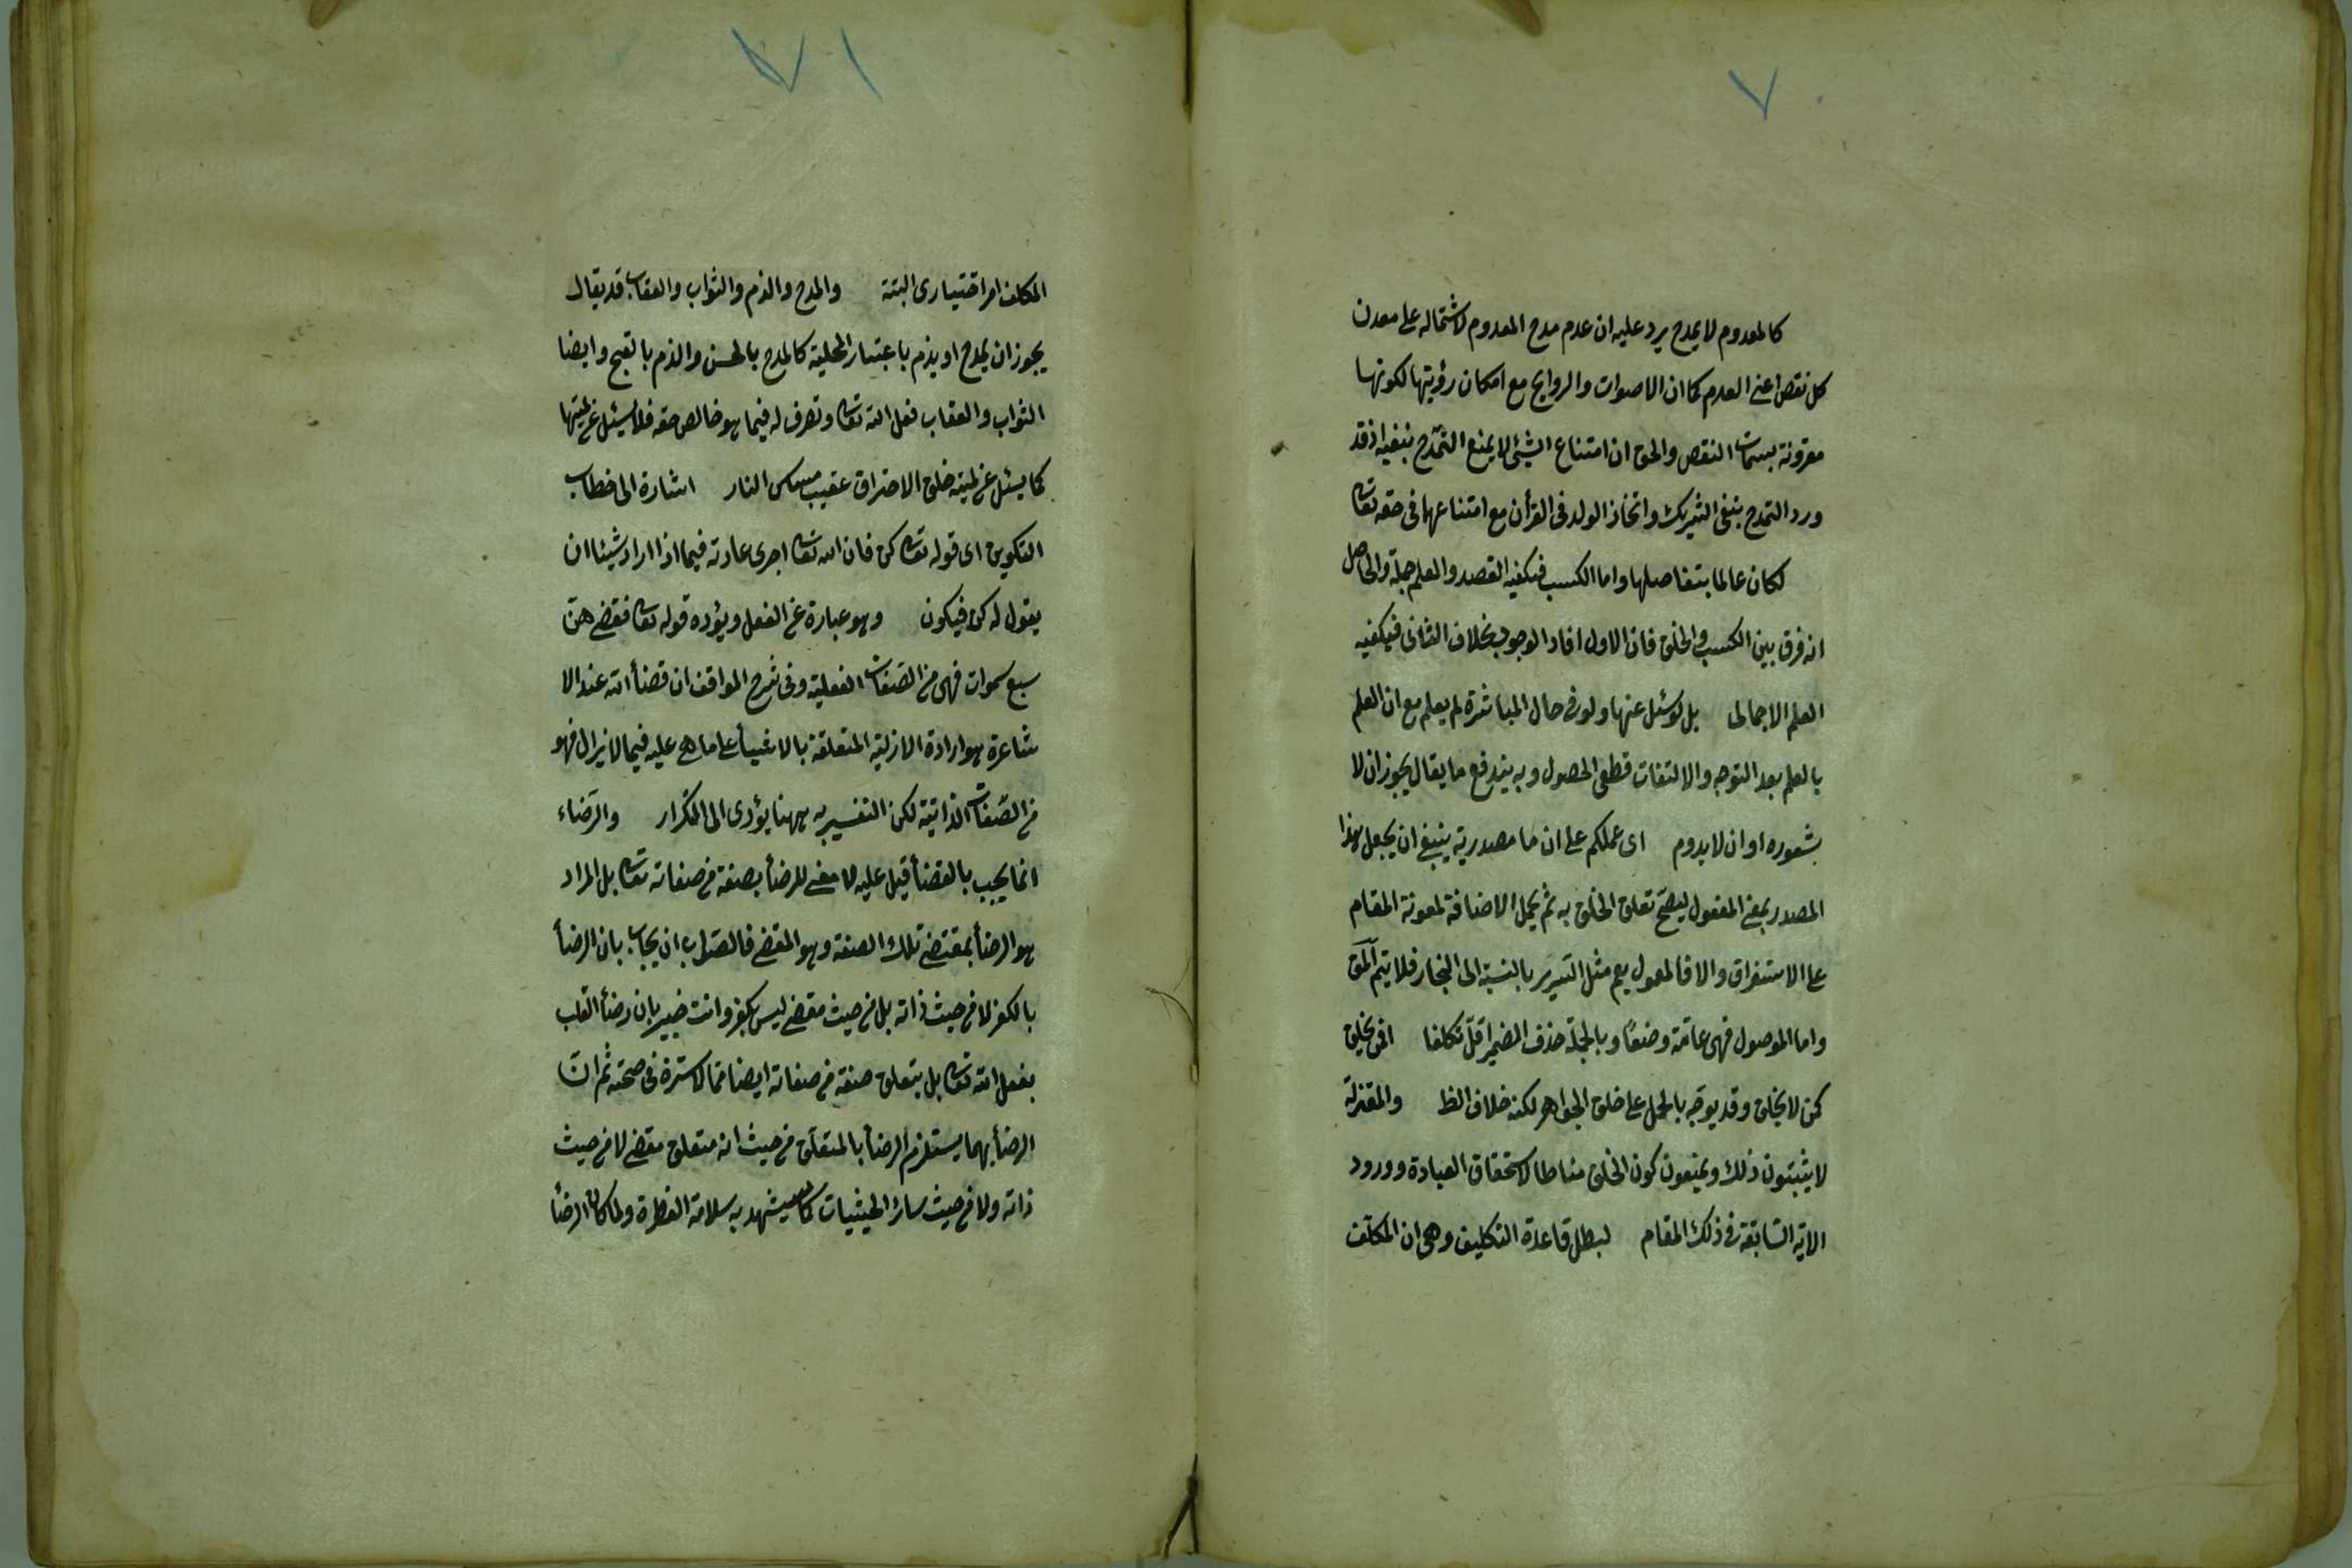 ٧٠
كالمعدوم لا يمدح يرد عليه ان عدم مدح المعدوم لاشتماله على معدن
كل نقص اعنى العدم كما ان الاصوات والروايح مع امكان رؤيتها لكونها
مقرونة بسمات النقص والحق ان امتناع الشئ لا يمنع التمدح بنفيه اذ قد
ورد التمدح بنفى الشريك واتخاذ الولد فى القرأن مع امتناعهما فى حقه تعالى
لكان عالما بتفاصيلها واما الكسب فيكفيه القصد والعلم جملة والحاصل
انه فرق بين الكسب والخلق فان الاول افاد الوجود بخلاف الثانى فيكفيه
العلم الاجمالى بل لو سئل عنها ولو فى حال المباشرة لم يعلم مع ان العلم
بالعلم بعد التوجه والالتفات قطعى الحصول وبه يندفع ما يقال يجوز ان لا
بشعوره او ان لا يدوم اى عملكم على ان ما مصدرية ينبغى ان يجعل هذا
المصدر بمعنى المفعول ليصح تعلق الخلق به ثم يحمل الاضافة لمعونة المقام
على الاستغراق والا فالمعمول يعم مثل السرير بالنسبة الى النجار فلا يتم المق
واما الموصول فهى عامة وضعًا وبالجملة حذف الضمير اقل تكلفا افمن يخلق
كمن لا يخلق وقد يوجه بالحمل على خلق الجواهر لكنه خلاف الظ والمعتزلة
لا يثبتون ذلك ويمنعون كون الخلق مناطا لاستحقاق العبادة وورود
الاية السابقة فى ذلك المقام لبطل قاعدة التكليف وهى ان المكلف
٧١
المكلف امر اختيارى البتة والمدح والذم والثواب والعقاب قد يقال
يجوز ان يمدح او يذم باعتبار المحلية كالمدح بالحسن والذم بالقبح وايضا
الثواب والعقاب فعل الله تعالى وتصرف له فيما هو خالص حقه فلا يسئل عن لميتها
كما لا يسئل عن لمية خلق الاحتراق عقيب مسيس النار اشارة الى خطاب
التكوين اى قوله تعالى كن فان الله تعالى اجرى عادته فيما اذا اراد شيئا ان
يقول له كن فيكون وهو عبارة عن الفعل ويؤده قوله تعالى فقضيهن
سبع سموات فهى من الصفات الفعلية وفى شرح المواقف ان قضأ الله عند الا
شاعرة هو ارادة الازلية المتعلقة بالاشيأ على ما هى عليه فيما لا يزال فهو
من الصفات الذاتية لكن التفسير به ههنا يؤدى الى التكرار والرضاء
انما يجب بالقضأ قيل عليه لا معنى للرضأ بصفة من صفاته تعالى بل المراد
هو الرضأ بمقتضى تلك الصفة وهو المقضى فالصواب ان يجاب بان الرضأ
بالكفر لا من حيث ذاته بل من حيث مقضى ليس بكفر وانت خبير بان رضأ القلب
بفعل الله تعالى بل بتعلق صفة من صفاته ايضا مما لا سترة فى صحته ثم ان
الرضأ بهما يستلزم الرضأ بالمتعلق من حيث انه متعلق مقضى لا من حيث
ذاته ولا من حيث سائر الحيثيات كما يشهد به سلامة الفطرة ولما كان الرضأ